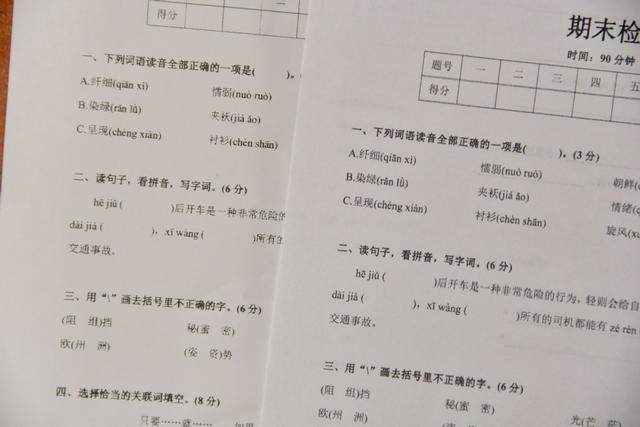 二
三
得分
一、下列词语读音全部正确的一项是( )。
A.纤细(qiān xì) 懦弱(nuò ruò)
B.染绿(rǎn lǜ) 夹袄(jiá ǎo)
C.呈现(chéng xiàn) 衬衫(chèn shān)
二、读句子，看拼音，写字词。(6 分)
hē jiǔ ( )后开车是一种非常危险的
dài jià ( )，xī wàng ( )所有的
交通事故。
三、用“\”画去括号里不正确的字。(6 分)
(阻 组)挡 秘(蜜 密)
欧(州 洲) (姿 资)势
四、选择恰当的关联词填空。(8 分)
只要……就……
期末检
时间：90 分钟
题号 一 二 三 四 五
得分
一、下列词语读音全部正确的一项是( )。(3 分)
A.纤细(qiān xì) 懦弱(nuò ruò) 朝鲜(
B.染绿(rǎn lǜ) 夹袄(jiá ǎo) 情绪(q
C.呈现(chéng xiàn) 衬衫(chèn shān) 旋风(xu
二、读句子，看拼音，写字词。(6 分)
hē jiǔ ( )后开车是一种非常危险的行为，轻则会给自
dài jià ( )，xī wàng ( )所有的司机都能有 zé rèn
交通事故。
三、用“\”画去括号里不正确的字。(6 分)
(阻 组)挡 秘(蜜 密) 光(芒 茫)
欧(州 洲)